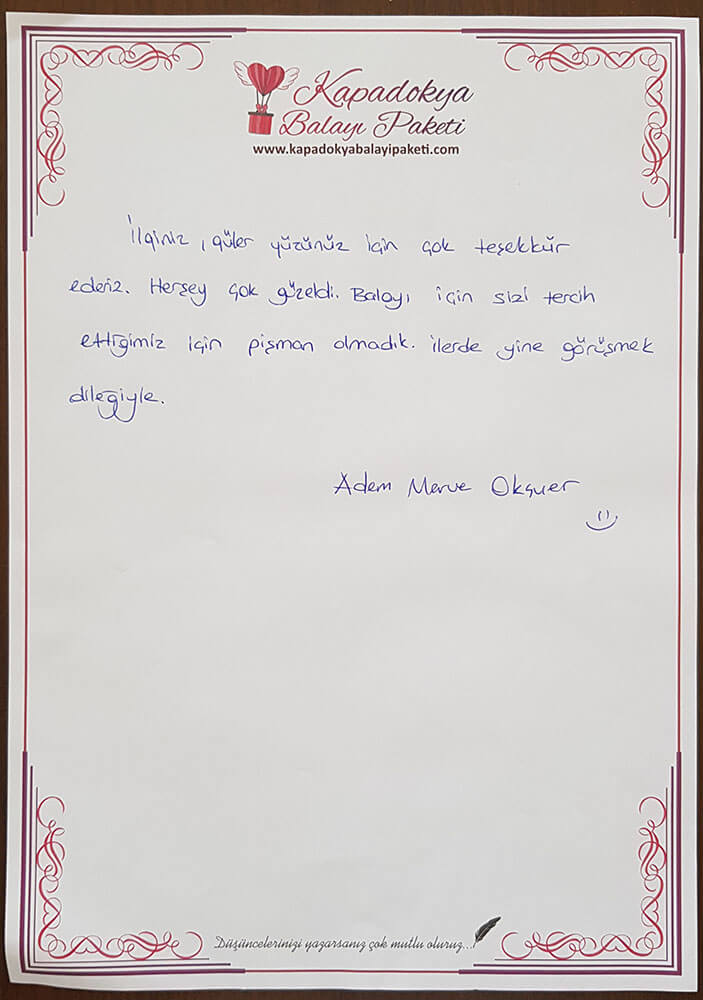 Kapadokya
Balayı Paketi
www.kapadokyabalayipaketi.com
İlginiz, güler yüzünüz için çok teşekkür
ederiz. Herşey çok güzeldi. Balayı için sizi tercih
ettiğimiz için pişman olmadık. ilerde yine görüşmek
dileğiyle.
Adem Merve
Düşüncelerinizi yazarsanız çok mutlu oluruz...